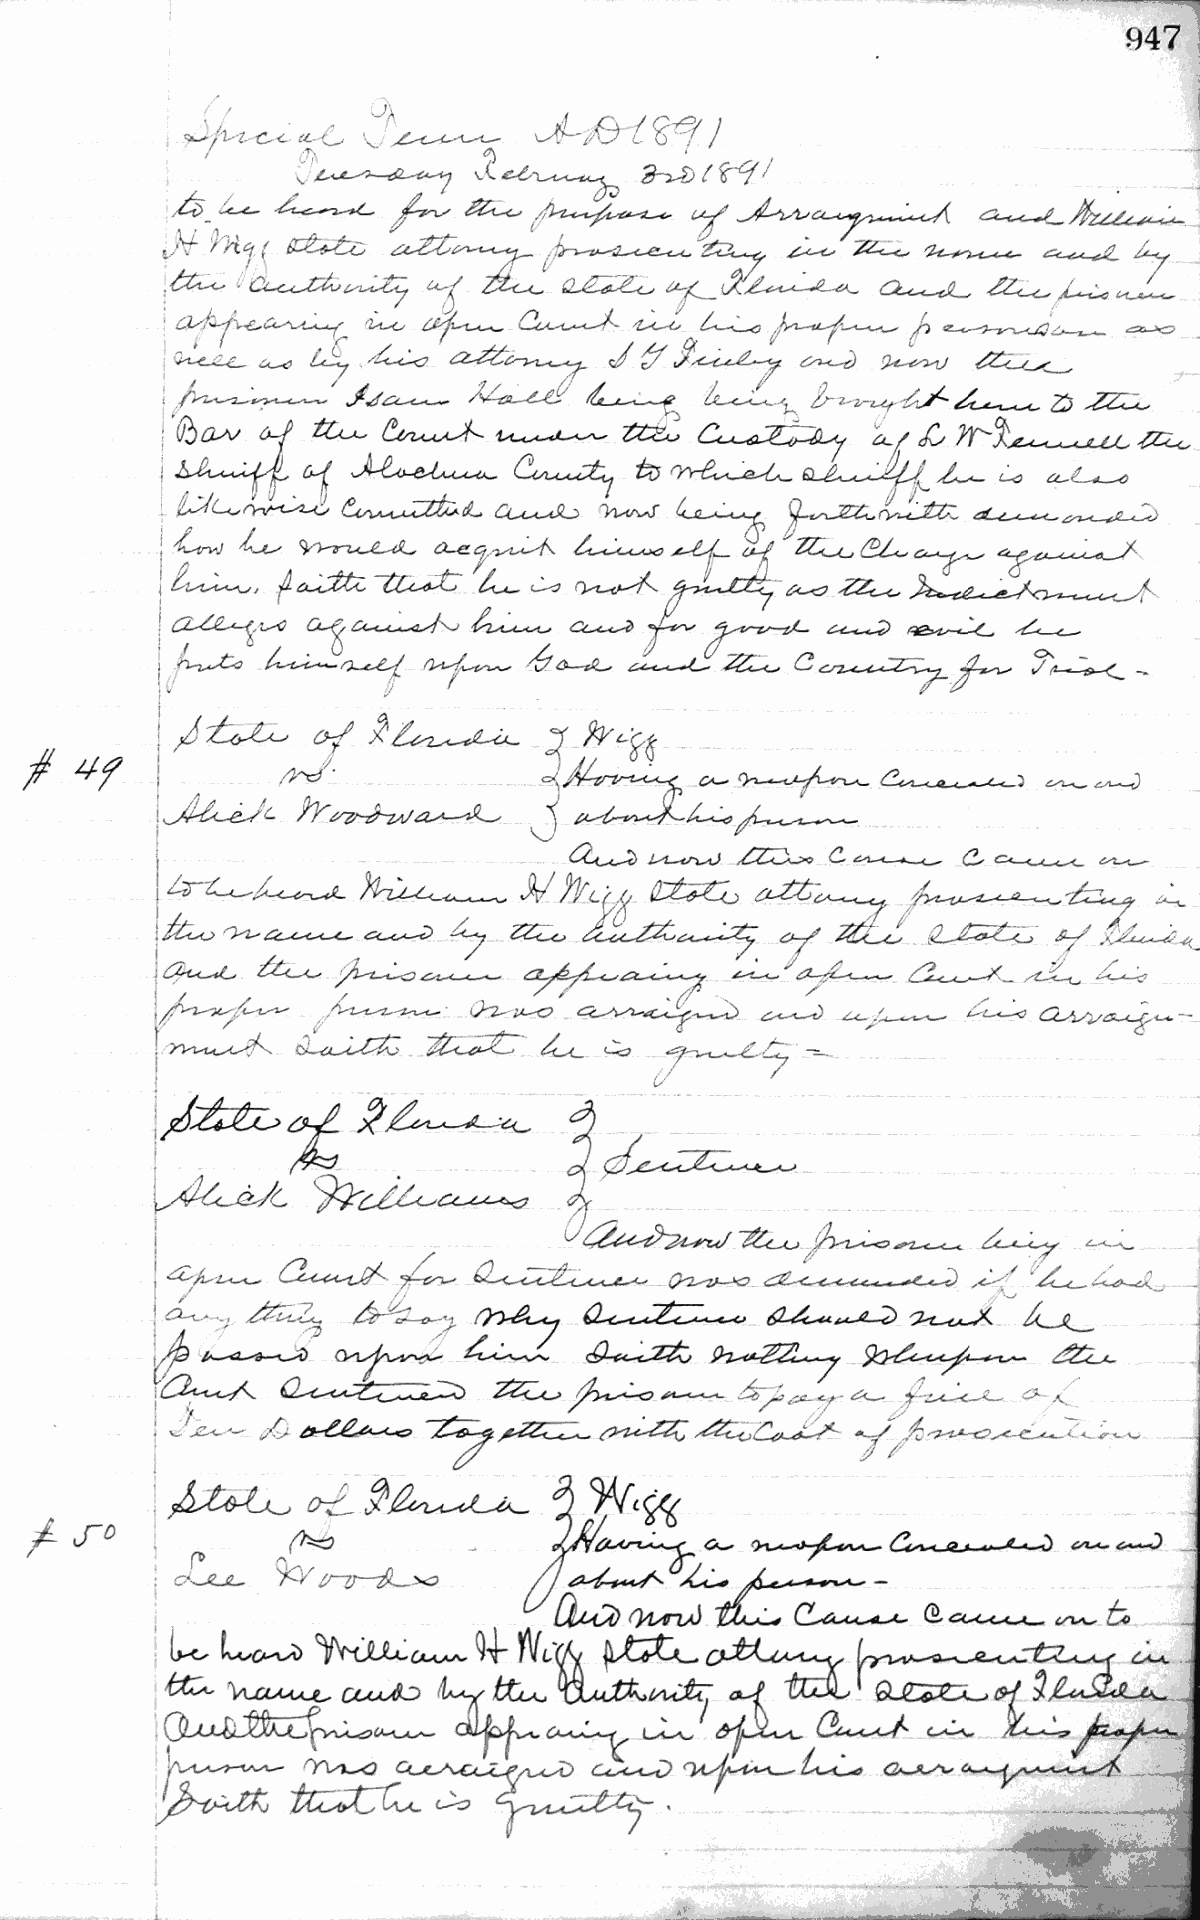 947
Special Term AD 1891
Tuesday February 3rd 1891
to be heard for the purpose of Arraignment and William
H Wigg State attorny prosecuting in the name and by
the authority of the State of Florida and the prisoner
appearing in open Court in his proper person as
well as by his attorny S Y Finley and now the
prisoner Isam Hall being being brought here to the
Bar of the Court under the Custody of L W Fennell the
Sheriff of Alachua County to which sheriff he is also
likewise Comitted and now being forthwith demanded
how he would acquit himself of the Charge against
him. Saith that he is not guilty as the Indictment
alleges against him and for good and evil he
puts himself upon God and the Country for Trial -
State of Florida } Wigg
# 49 vs. } Having a weapon Concealed on and
Alick Woodward } about his person
And now this Cause Came on
to be heard William H Wigg State attorny prosecuting in
the name and by the authority of the State of Florida
and the prisoner appearing in open Court in his
proper person was arraigned and upon his arraign-
ment Saith that he is guilty =
State of Florida }
vs } Sentence
Alick Williams }
And now the prisoner being in
open Court for Sentence was demanded if he had
any thing to say why Sentence should not be
passed upon him Saith nothing Whereupon the
Court Sentenced the prisoner to pay a fine of
Ten Dollars together with the Cost of prosecution
State of Florida } Wigg
# 50 vs } Having a weapon Concealed on and
Lee Woods } about his person -
And now this Cause Came on to
be heard William H Wigg State attorny prosecuting in
the name and by the Authority of the State of Florida
And the prisoner appearing in open Court in his proper
person was arraigned and upon his arraignment
Saith that he is guilty.